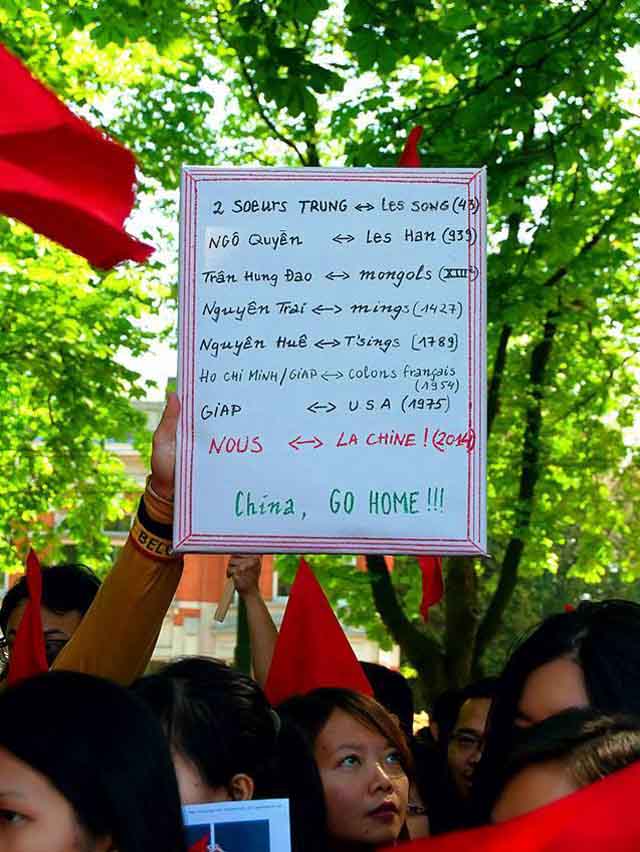 2 SOEURS TRUNG ↔ LES SONG (43)
NGÔ QUYỀN ↔ LES HAN (939)
Trần Hưng Đạo ↔ mongols (XIIIe)
Nguyên Trai ↔ mings (1427)
Nguyên Huê ↔ T'sings (1789)
HO CHI MINH/GIAP ↔ colons français
(1954)
GIAP ↔ USA (1975)
NOUS ↔ LA CHINE ! (2014)
China, GO HOME !!!